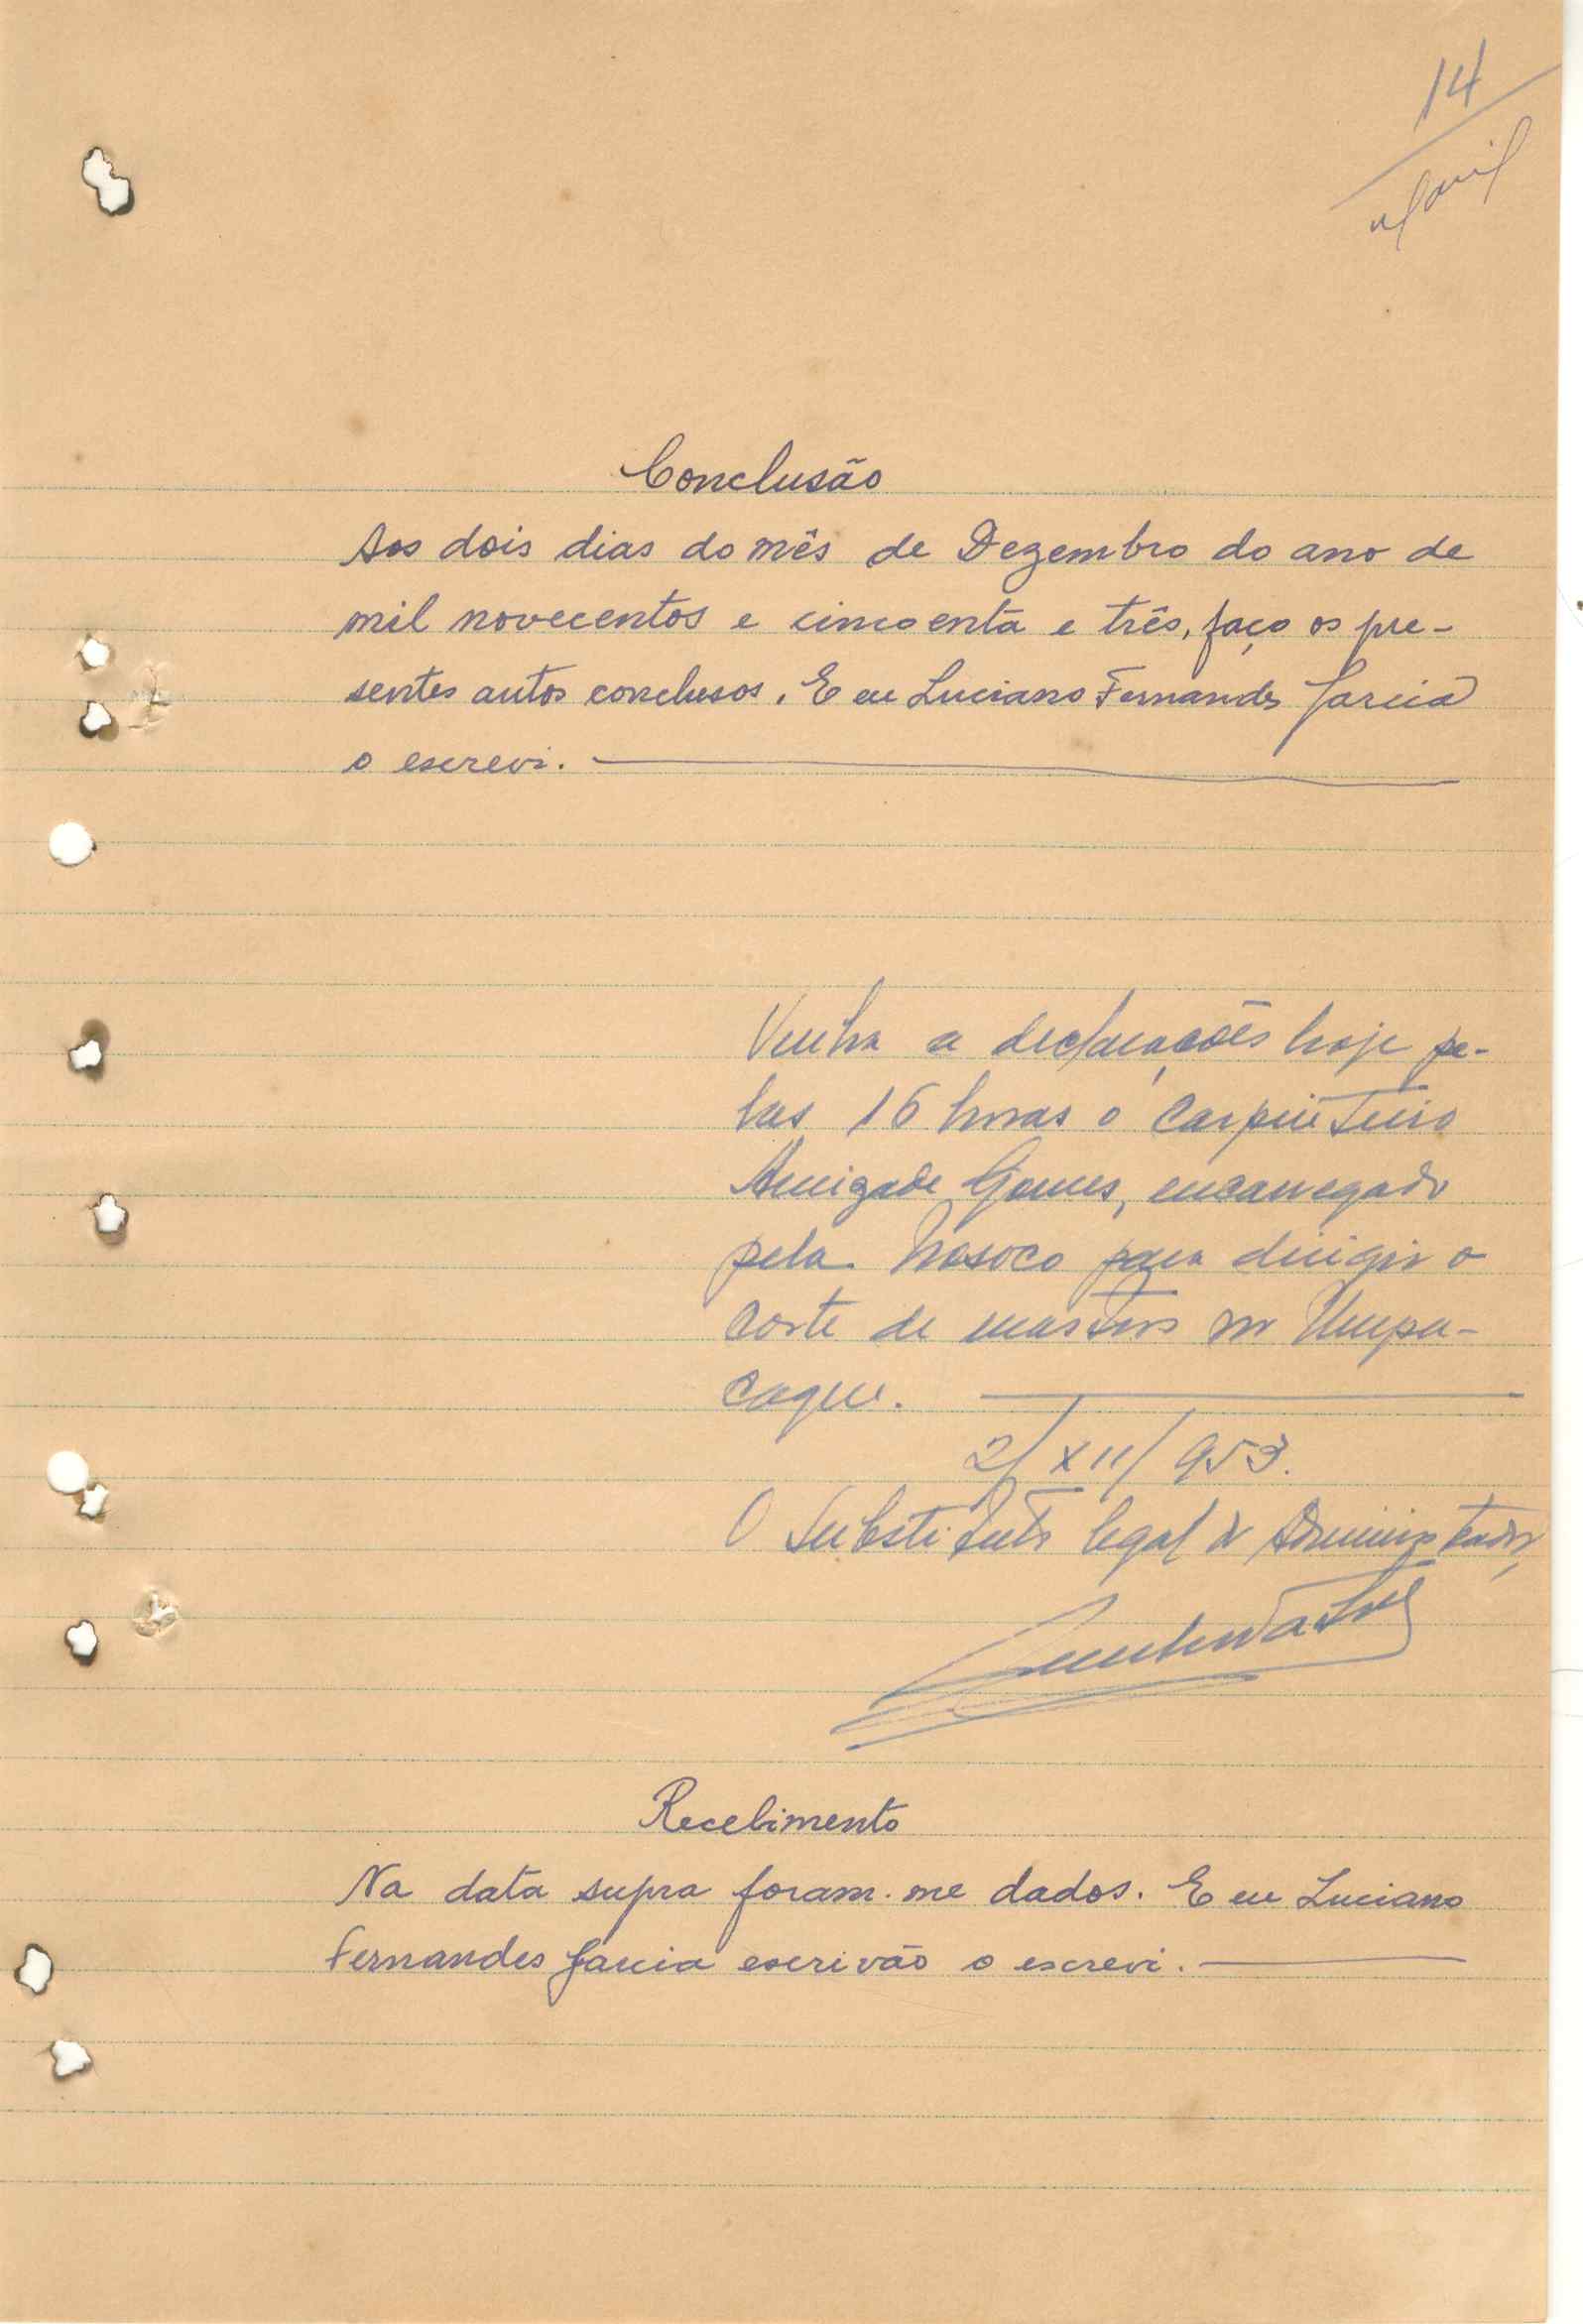 14
Conclusão
Aos dois dias do mês de Dezembro do ano de
mil novecentos e cincoenta e três, faço os pre-
sentes autos conclusos. E eu Luciano Fernandes Garcia
o escrevi.
Venha a declarações hoje pe-
las 16 horas o carpinteiro
Amizade Gomes, encarregado
pela Nosoco para dirigir o
corte de mastros no Umpa-
caque.
2/XII/953.
O Substituto legal do Administrador,
Recebimento
Na data supra foram-me dados. E eu Luciano
Fernandes Garcia escrivão o escrevi.